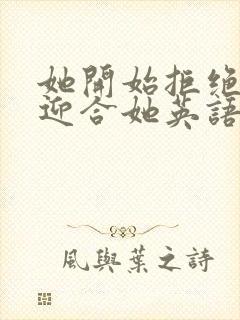 她開始拒絕
迎合她英語
風與葉之詩